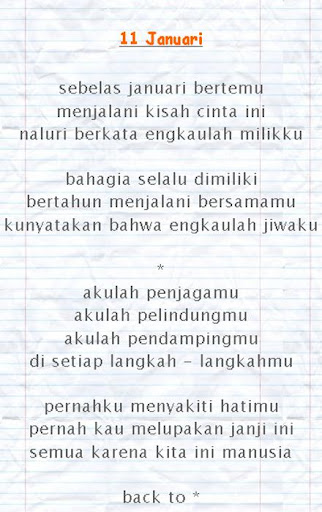 11 Januari
sebelas januari bertemu
menjalani kisah cinta ini
naluri berkata engkaulah milikku
bahagia selalu dimiliki
bertahun menjalani bersamamu
kunyatakan bahwa engkaulah jiwaku
*
akulah penjagamu
akulah pelindungmu
akulah pendampingmu
di setiap langkah – langkahmu
pernahku menyakiti hatimu
pernah kau melupakan janji ini
semua karena kita ini manusia
back to *